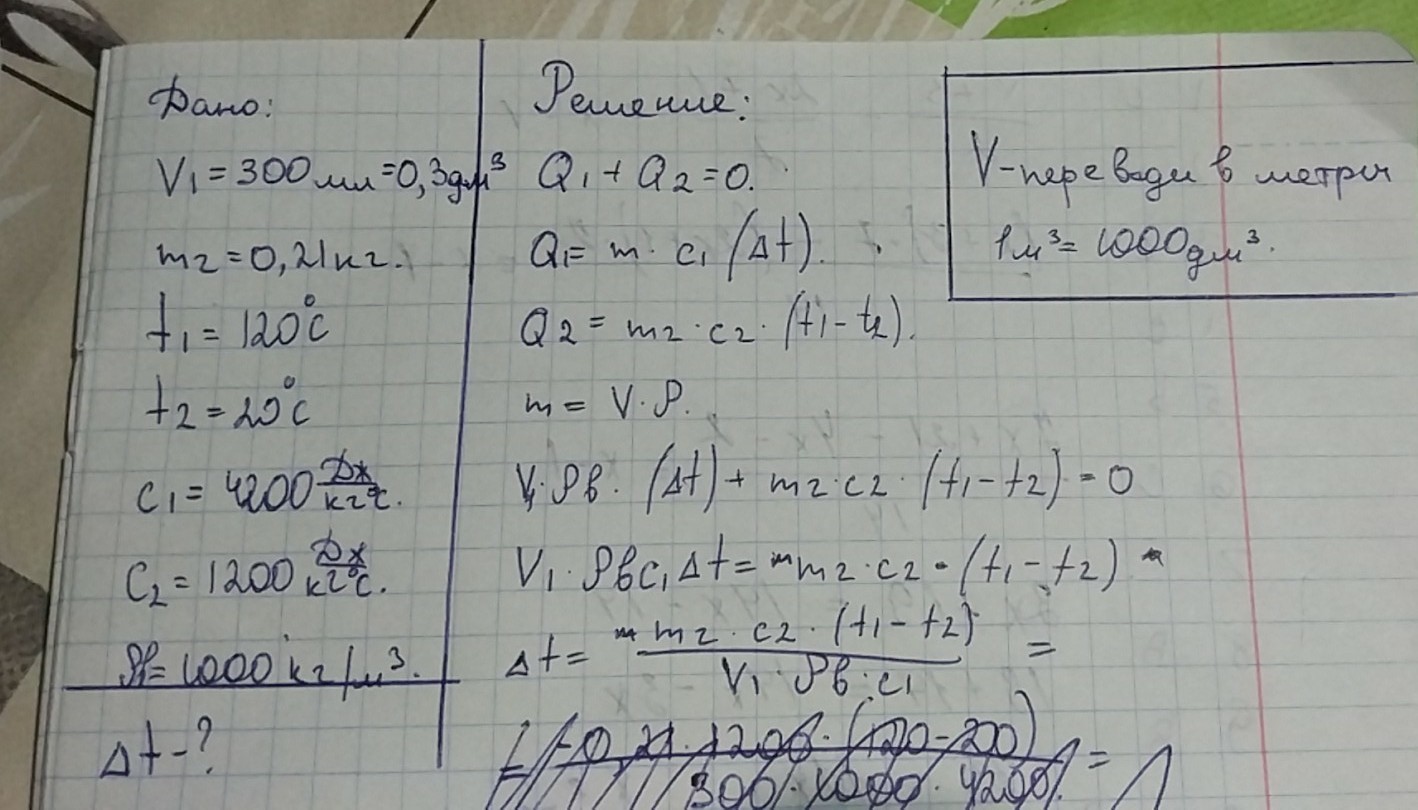 Дано:
V₁ = 300 мл = 0,3 дм³
m₂ = 0,21 кг.
t₁ = 120°C
t₂ = 20°C
c₁ = 4200 Дж/кг°C.
c₂ = 1200 Дж/кг°C.
ρв = 1000 кг/м³.
Δt - ?
Решение:
Q₁ + Q₂ = 0.
Q₁ = m · c₁ (Δt).
Q₂ = m₂ · c₂ · (t₁ - t₂).
m = V · ρ.
V₁ · ρв · (Δt) + m₂ · c₂ · (t₁ - t₂) = 0
V₁ · ρв c₁ Δt = m₂ · c₂ · (t₁ - t₂)
Δt = m₂ · c₂ · (t₁ - t₂) / V₁ · ρв · c₁ =
-0,21 · 1200 · (120 - 200) / 300 · 1000 · 4200 =
V - переводи в метры
1 м³ = 1000 дм³.